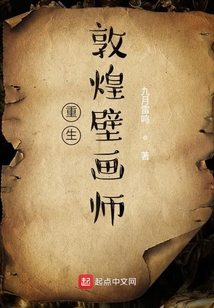 重生
敦煌壁画师
九月雷鸣
著
起点
起点中文网